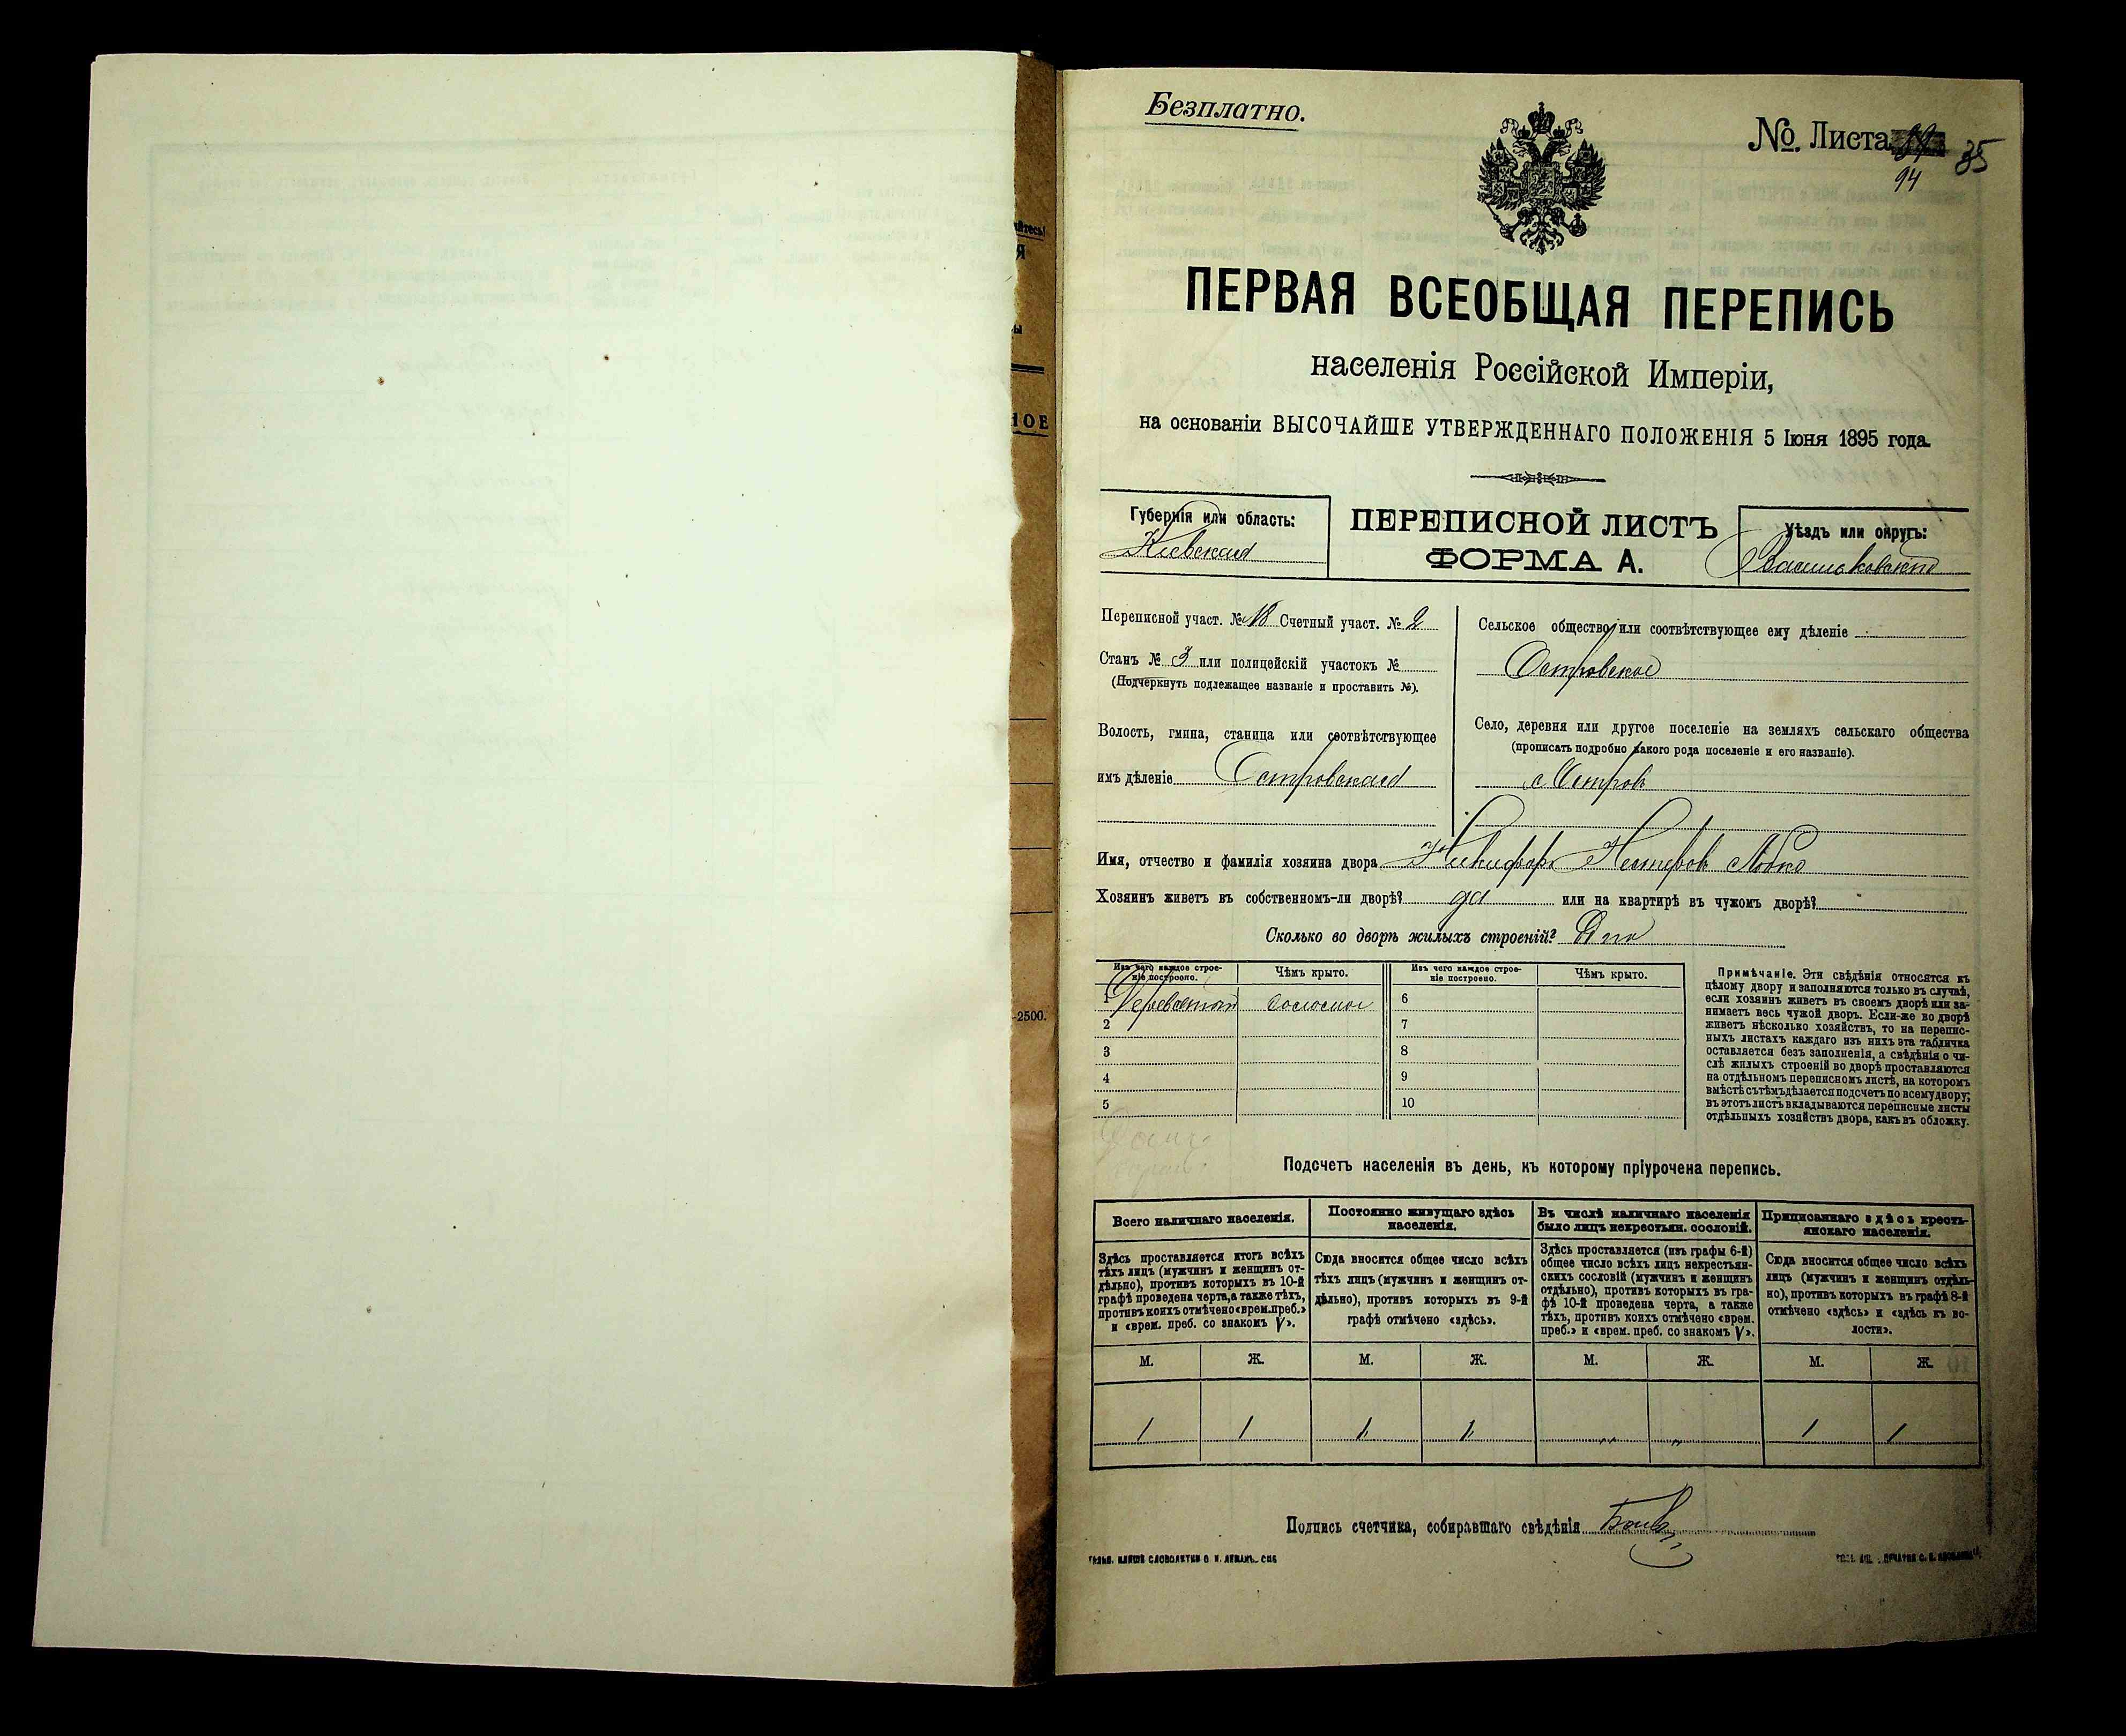 Безплатно.
№. Листа 35
94
ПЕРВАЯ ВСЕОБЩАЯ ПЕРЕПИСЬ
населенія Россійской Имперіи,
на основаніи ВЫСОЧАЙШЕ УТВЕРЖДЕННАГО ПОЛОЖЕНІЯ 5 Іюня 1895 года.
Губернія или область:
Кіевская
ПЕРЕПИСНОЙ ЛИСТЪ
ФОРМА А.
Уѣздъ или округъ:
Васильковскій
Переписной участ. № 18 Счетный участ. № 2
Станъ № 3 или полицейскій участокъ №
(Подчеркнуть подлежащее названіе и проставить №).
Волость, гмина, станица или соотвѣтствующее
имъ дѣленіе Островская
Сельское общество или соотвѣтствующее ему дѣленіе
Островское
Село, деревня или другое поселеніе на земляхъ сельскаго общества
(прописать подробно какого рода поселеніе и его названіе).
с. Островъ
Имя, отчество и фамилія хозяина двора Никифоръ Нестеровъ
Хозяинъ живетъ въ собственномъ-ли дворѣ? да или на квартирѣ въ чужомъ дворѣ?
Сколько во дворѣ жилыхъ строеній? Одно
Изъ чего каждое строе-
ніе построено.
Чѣмъ крыто.
Изъ чего каждое строе-
ніе построено.
Чѣмъ крыто.
1 соломой 6
2 7
3 8
4 9
5 10
Примѣчаніе. Эти свѣдѣнія относятся къ
цѣлому двору и заполняются только въ случаѣ,
если хозяинъ живетъ въ своемъ дворѣ или за-
нимаетъ весь чужой дворъ. Если-же во дворѣ
живетъ нѣсколько хозяйствъ, то на перепис-
ныхъ листахъ каждаго изъ нихъ эта табличка
оставляется безъ заполненія, а свѣдѣнія о чи-
слѣ жилыхъ строеній во дворѣ проставляются
на отдѣльномъ переписномъ листѣ, на которомъ
вмѣстѣ съ тѣмъ дѣлается подсчетъ по всему двору;
въ этотъ листъ вкладываются переписные листы
отдѣльныхъ хозяйствъ двора, какъ въ обложку.
Подсчетъ населенія въ день, къ которому пріурочена перепись.
Всего наличнаго населенія.
Здѣсь проставляется итогъ всѣхъ
тѣхъ лицъ (мужчинъ и женщинъ от-
дѣльно), противъ которыхъ въ 10-й
графѣ проведена черта, а также тѣхъ,
противъ коихъ отмѣчено «врем. преб.»
и «врем. преб. со знакомъ V».
Постоянно живущаго здѣсь
населенія.
Сюда вносится общее число всѣхъ
тѣхъ лицъ (мужчинъ и женщинъ от-
дѣльно), противъ которыхъ въ 9-й
графѣ отмѣчено «здѣсь».
Въ числѣ наличнаго населенія
было лицъ некрестьян. сословій.
Здѣсь проставляется (изъ графы 6-й)
общее число всѣхъ лицъ некрестьян-
скихъ сословій (мужчинъ и женщинъ
отдѣльно), противъ которыхъ въ гра-
фѣ 10-й проведена черта, а также
тѣхъ, противъ коихъ отмѣчено «врем.
преб.» и «врем. преб. со знакомъ V».
Приписаннаго здѣсь кресть-
янскаго населенія.
Сюда вносится общее число всѣхъ
лицъ (мужчинъ и женщинъ отдѣль-
но), противъ которыхъ въ графѣ 8-й
отмѣчено «здѣсь» и «здѣсь къ во-
лости».
М. Ж. М. Ж. М. Ж. М. Ж.
1 1 1 1 „ „ 1 1
Подпись счетчика, собиравшаго свѣдѣнія
НОЕ
-2500.